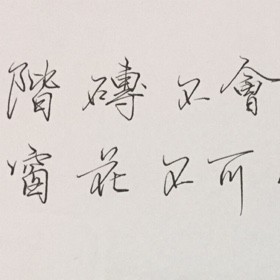 階磚不會
窗花不可